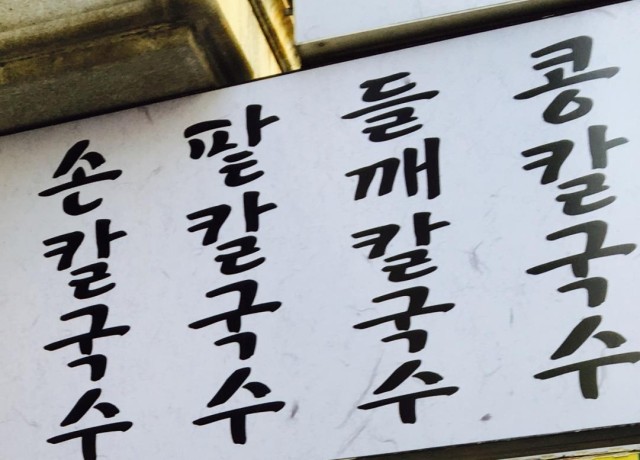 손칼국수
팥칼국수
들깨칼국수
콩칼국수